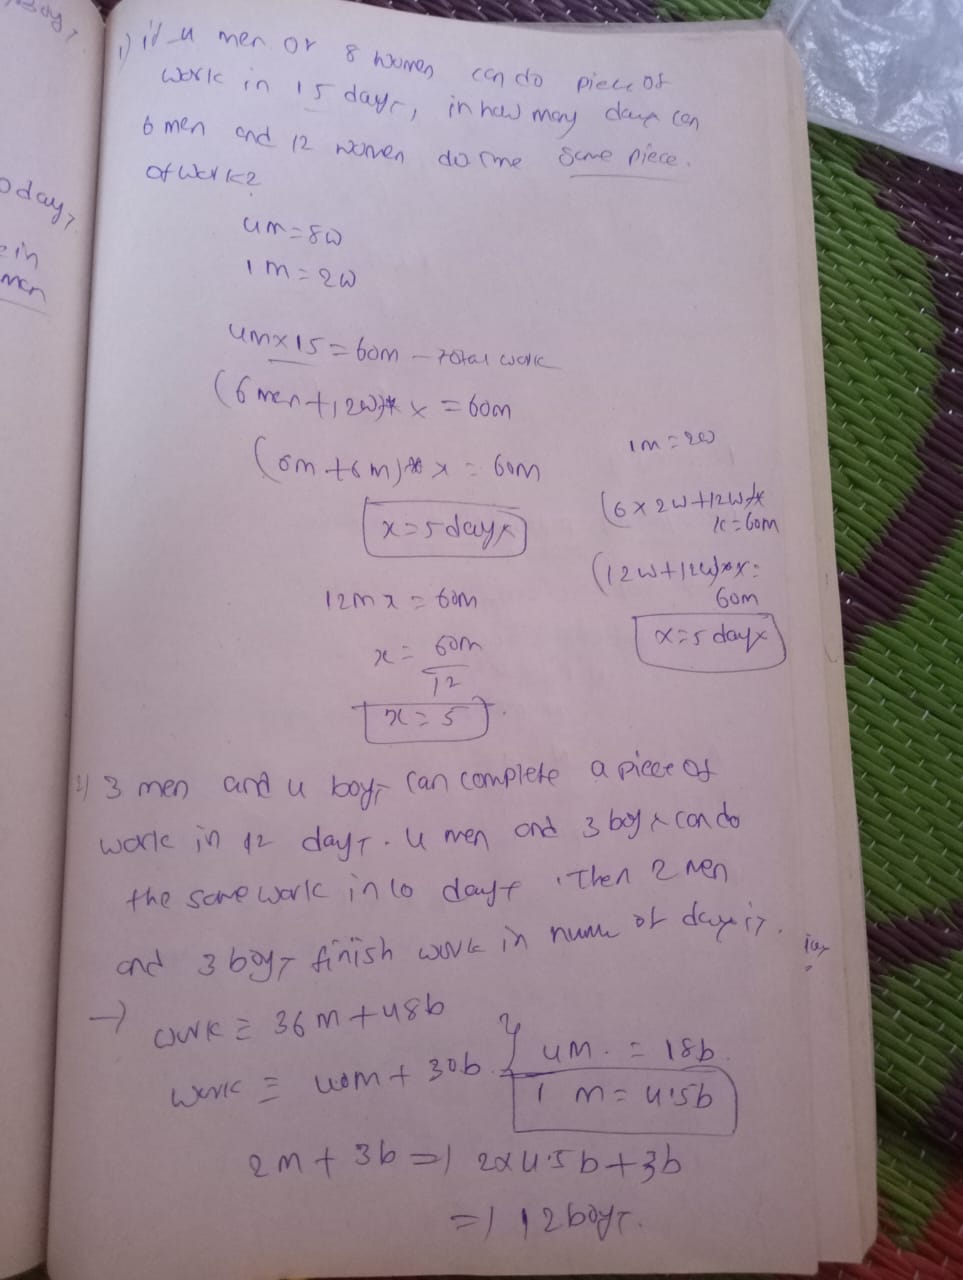 Boy,
0 day,
e in
men
1) if 4 men or 8 women can do piece of
work in 15 days, in how many days can
6 men and 12 women do the same piece.
of work?
4m=8w
1m=2w
4m×15=60m - Total work
(6men+12w)* x = 60m
(6m+6m)* x = 60m
x=5days
12mx = 60m
x = 60m
12
x = 5
1m=2w
(6×2w+12w)*
x=60m
(12w+12w)*x=
60m
x=5days
2) 3 men and 4 boys can complete a piece of
work in 12 days. 4 men and 3 boys can do
the same work in 10 days. Then 2 men
and 3 boys finish work in num of days is.
→ work = 36m+48b
work = 40m+30b } 4m = 18b
1m = 4.5b
2m+3b => 2×4.5b+3b
=> 12boys.